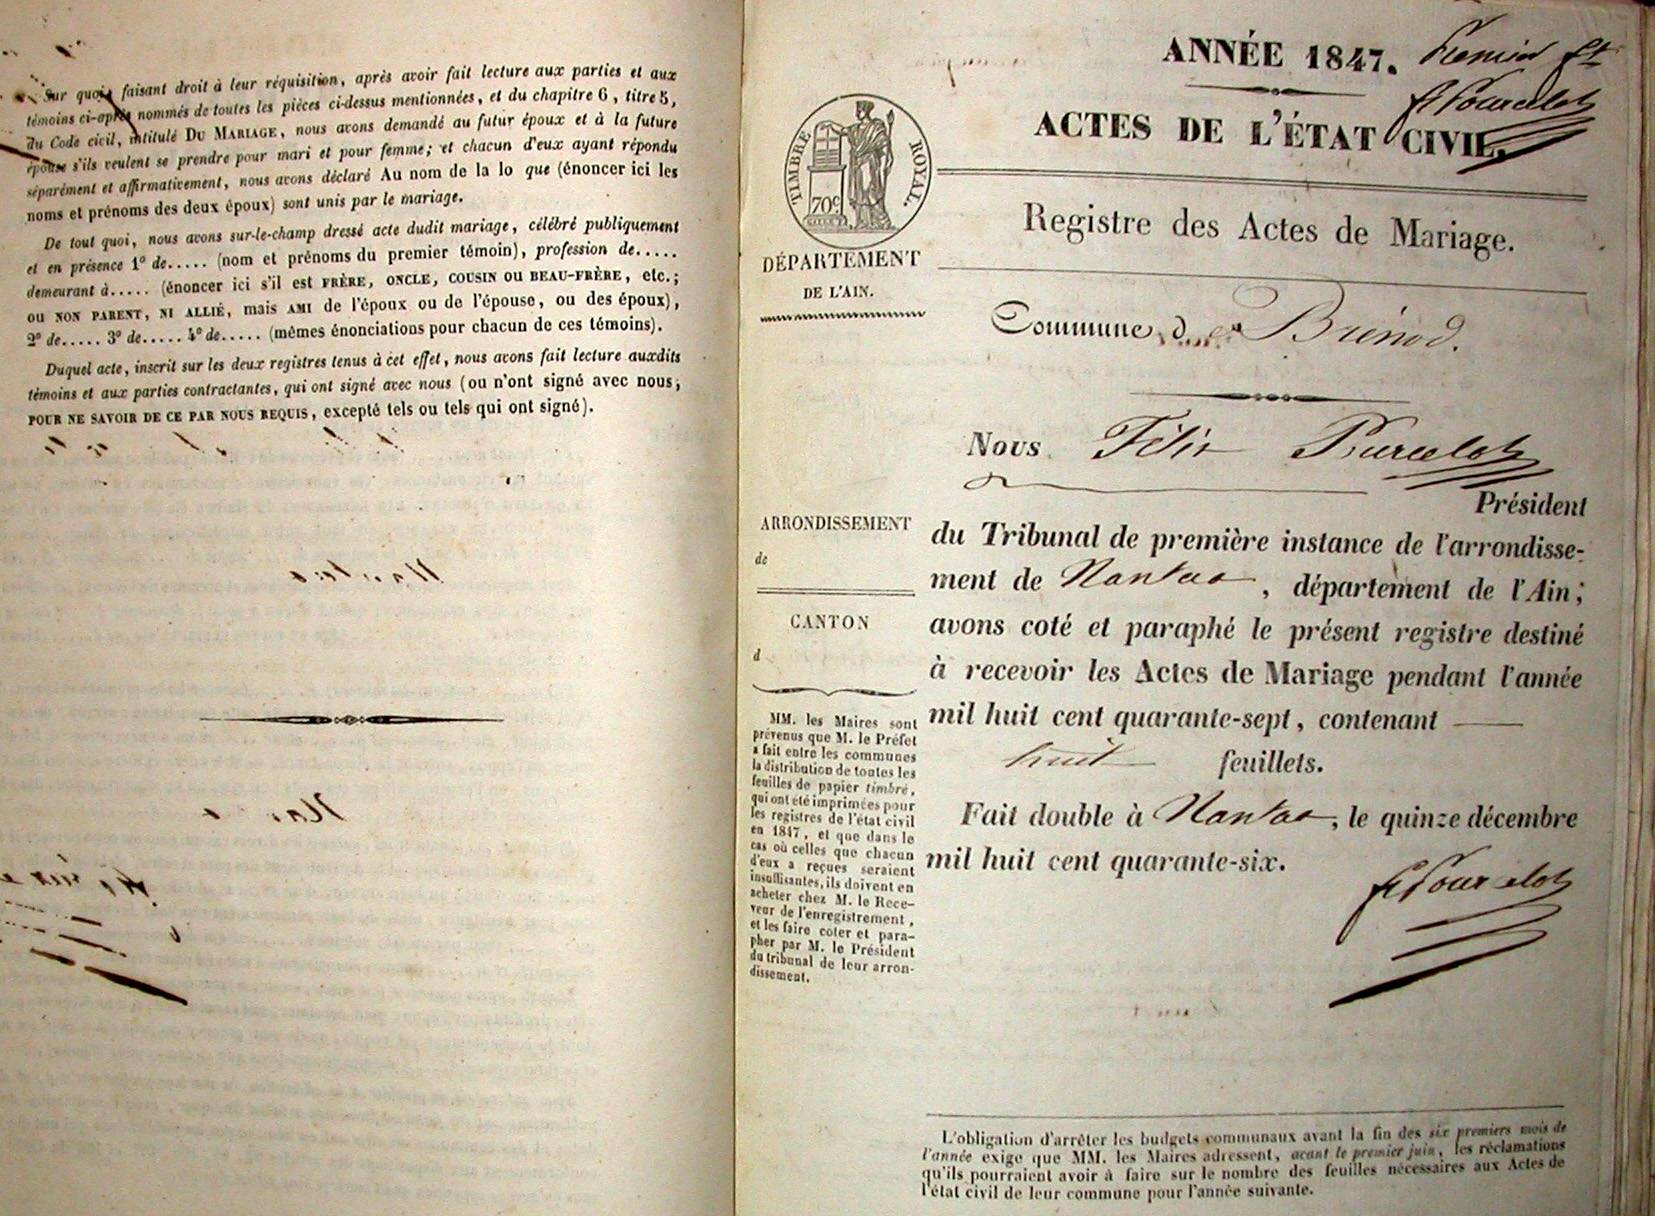 Sur quoi, faisant droit à leur réquisition, après avoir fait lecture aux parties et aux
témoins ci-après nommés de toutes les pièces ci-dessus mentionnées, et du chapitre 6, titre 5,
du Code civil, intitulé DU MARIAGE, nous avons demandé au futur époux et à la future
épouse s'ils veulent se prendre pour mari et pour femme; et chacun d'eux ayant répondu
séparément et affirmativement, nous avons déclaré Au nom de la lo que (énoncer ici les
noms et prénoms des deux époux) sont unis par le mariage.
De tout quoi, nous avons sur-le-champ dressé acte dudit mariage, célébré publiquement
et en présence 1° de..... (nom et prénoms du premier témoin), profession de.....
demeurant à..... (énoncer ici s'il est FRÈRE, ONCLE, COUSIN OU BEAU-FRÈRE, etc.;
OU NON PARENT, NI ALLIÉ, mais AMI de l'époux ou de l'épouse, ou des époux),
2° de..... 3° de..... 4° de..... (mêmes énonciations pour chacun de ces témoins).
Duquel acte, inscrit sur les deux registres tenus à cet effet, nous avons fait lecture auxdits
témoins et aux parties contractantes, qui ont signé avec nous (ou n'ont signé avec nous,
POUR NE SAVOIR DE CE PAR NOUS REQUIS, excepté tels ou tels qui ont signé).
ANNÉE 1847. Premier ft
ft Pourcelot
ACTES DE L'ÉTAT CIVIL.
TIMBRE ROYAL.
70c
Registre des Actes de Mariage.
DÉPARTEMENT
DE L'AIN.
Commune de Brénod.
Nous Félix Pourcelot
Président
du Tribunal de première instance de l'arrondisse-
ment de Nantua, département de l'Ain;
avons coté et paraphé le présent registre destiné
à recevoir les Actes de Mariage pendant l'année
mil huit cent quarante-sept, contenant
huit feuillets.
Fait double à Nantua, le quinze décembre
mil huit cent quarante-six.
Pourcelot
ARRONDISSEMENT
de
CANTON
d
MM. les Maires sont
prévenus que M. le Préfet
a fait entre les communes
la distribution de toutes les
feuilles de papier timbré,
qui ont été imprimées pour
les registres de l'état civil
en 1847, et que dans le
cas où celles que chacun
d'eux a reçues seraient
insuffisantes, ils doivent en
acheter chez M. le Rece-
veur de l'enregistrement,
et les faire coter et para-
pher par M. le Président
du tribunal de leur arron-
dissement.
L'obligation d'arrêter les budgets communaux avant la fin des six premiers mois de
l'année exige que MM. les Maires adressent, avant le premier juin, les réclamations
qu'ils pourraient avoir à faire sur le nombre des feuilles nécessaires aux Actes de
l'état civil de leur commune pour l'année suivante.